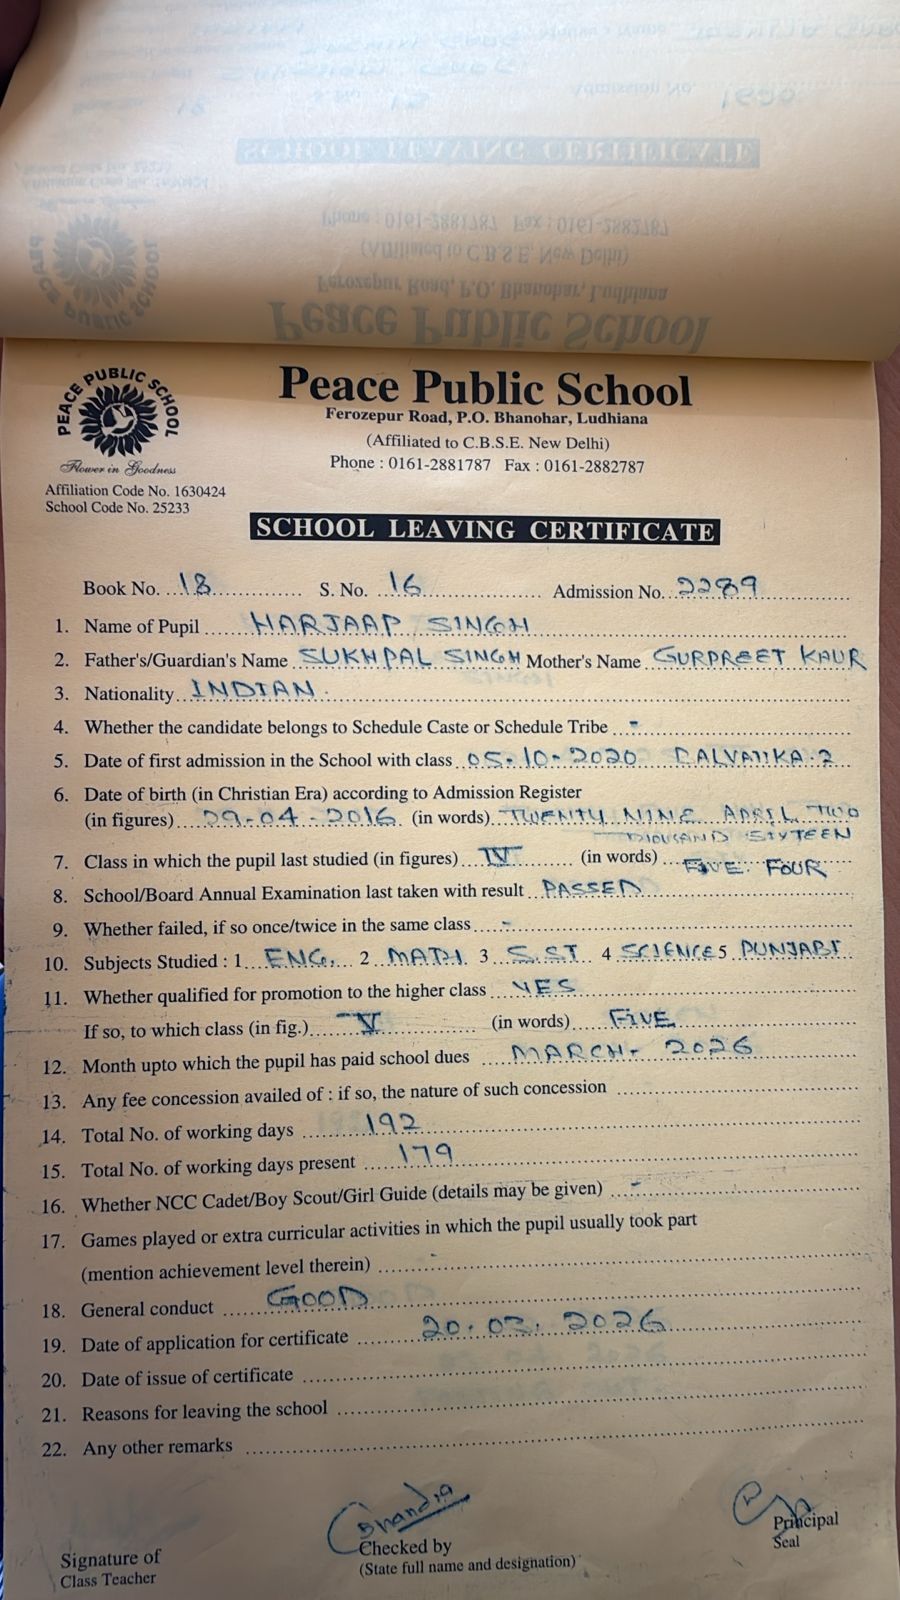 Peace Public School
Ferozepur Road, P.O. Bhanohar, Ludhiana
(Affiliated to C.B.S.E. New Delhi)
Phone : 0161-2881787 Fax : 0161-2882787
PEACE PUBLIC SCHOOL
Flower in Goodness
Affiliation Code No. 1630424
School Code No. 25233
SCHOOL LEAVING CERTIFICATE
Book No. 18 S. No. 16 Admission No. 2289
1. Name of Pupil HARJAAP SINGH
2. Father's/Guardian's Name SUKHPAL SINGH Mother's Name GURPREET KAUR
3. Nationality INDIAN.
4. Whether the candidate belongs to Schedule Caste or Schedule Tribe -
5. Date of first admission in the School with class 05-10-2020 BALVATIKA-2
6. Date of birth (in Christian Era) according to Admission Register
(in figures) 29-04-2016 (in words) TWENTY NINE APRIL TWO
THOUSAND SIXTEEN
7. Class in which the pupil last studied (in figures) IV (in words) FIVE FOUR
8. School/Board Annual Examination last taken with result PASSED
9. Whether failed, if so once/twice in the same class -
10. Subjects Studied : 1 ENG. 2 MATH 3 S.ST 4 SCIENCE 5 PUNJABI
11. Whether qualified for promotion to the higher class YES
If so, to which class (in fig.) V (in words) FIVE
12. Month upto which the pupil has paid school dues MARCH- 2026
13. Any fee concession availed of : if so, the nature of such concession
14. Total No. of working days 192
15. Total No. of working days present 179
16. Whether NCC Cadet/Boy Scout/Girl Guide (details may be given) -
17. Games played or extra curricular activities in which the pupil usually took part
(mention achievement level therein) -
18. General conduct GOOD
19. Date of application for certificate 20.03.2026
20. Date of issue of certificate
21. Reasons for leaving the school
22. Any other remarks
Signature of
Class Teacher
Checked by
(State full name and designation)
Principal
Seal